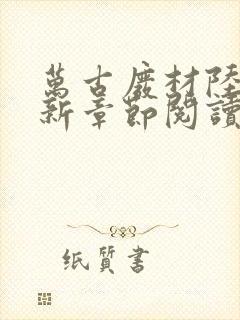 萬古廢材陸
新章節閱讀
纸質書